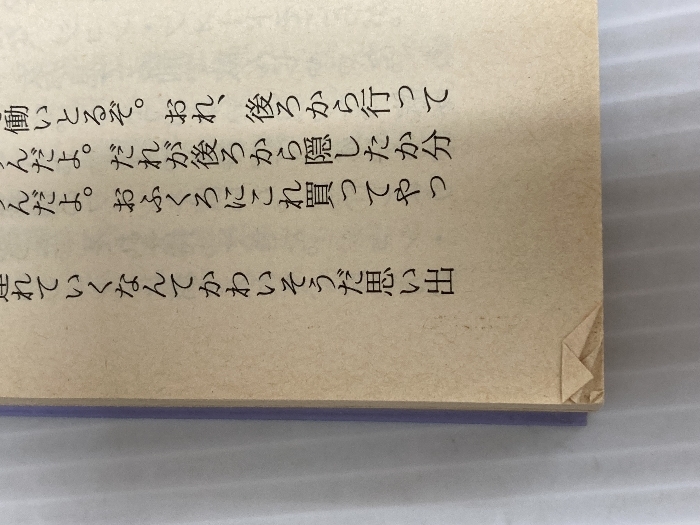 働いとるぞ。おれ、後ろから行って
んだよ。だれが後ろから隠したか分
んだよ。おふくろにこれ買ってやっ
連れていくなんてかわいそうだ思い出